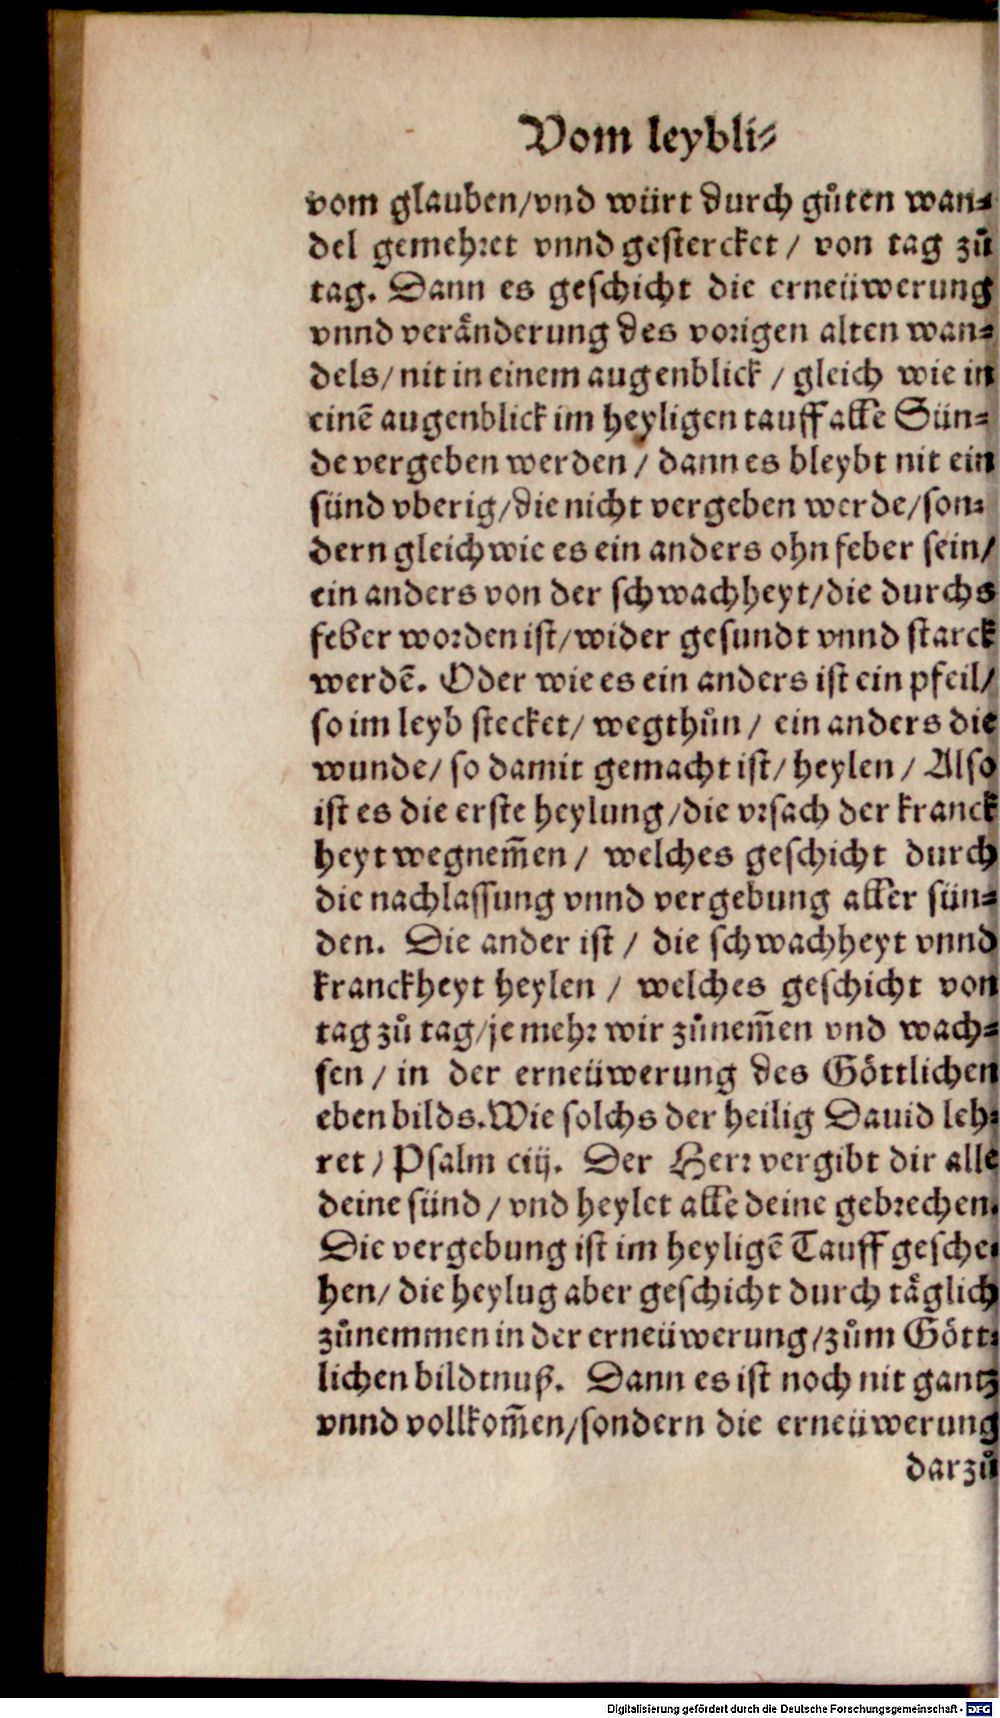 Vom leybli⸗
vom glauben/vnd würt durch gůten wan⸗
del gemehret vnnd gestercket / von tag zů
tag. Dann es geschicht die erneüwerung
vnnd veränderung des vorigen alten wan⸗
dels/ nit in einem augenblick / gleich wie in
einē augenblick im heyligen tauff alle Sün⸗
de vergeben werden / dann es bleybt nit ein
sünd vberig/die nicht vergeben werde/son⸗
dern gleich wie es ein anders ohn feber sein/
ein anders von der schwachheyt/die durchs
feber worden ist/wider gesundt vnnd starck
werdē. Oder wie es ein anders ist ein pfeil/
so im leyb stecket/ wegthůn / ein anders die
wunde/ so damit gemacht ist/ heylen / Also
ist es die erste heylung/die vrsach der kranck
heyt wegnem̄en / welches geschicht durch
die nachlassung vnnd vergebung aller sün⸗
den. Die ander ist / die schwachheyt vnnd
kranckheyt heylen / welches geschicht von
tag zů tag/je mehr wir zůnem̄en vnd wach⸗
sen / in der erneüwerung des Göttlichen
ebenbilds. Wie solchs der heilig Dauid leh⸗
ret / Psalm ciij. Der Herr vergibt dir alle
deine sünd / vnd heylet alle deine gebrechen.
Die vergebung ist im heyligē Tauff gesche⸗
hen/ die heylug aber geschicht durch täglich
zůnemmen in der erneüwerung/zům Gött⸗
lichen bildtnuß. Dann es ist noch nit gantz
vnnd vollkom̄en/sondern die erneüwerung
darzů
Digitalisierung gefördert durch die Deutsche Forschungsgemeinschaft - DFG